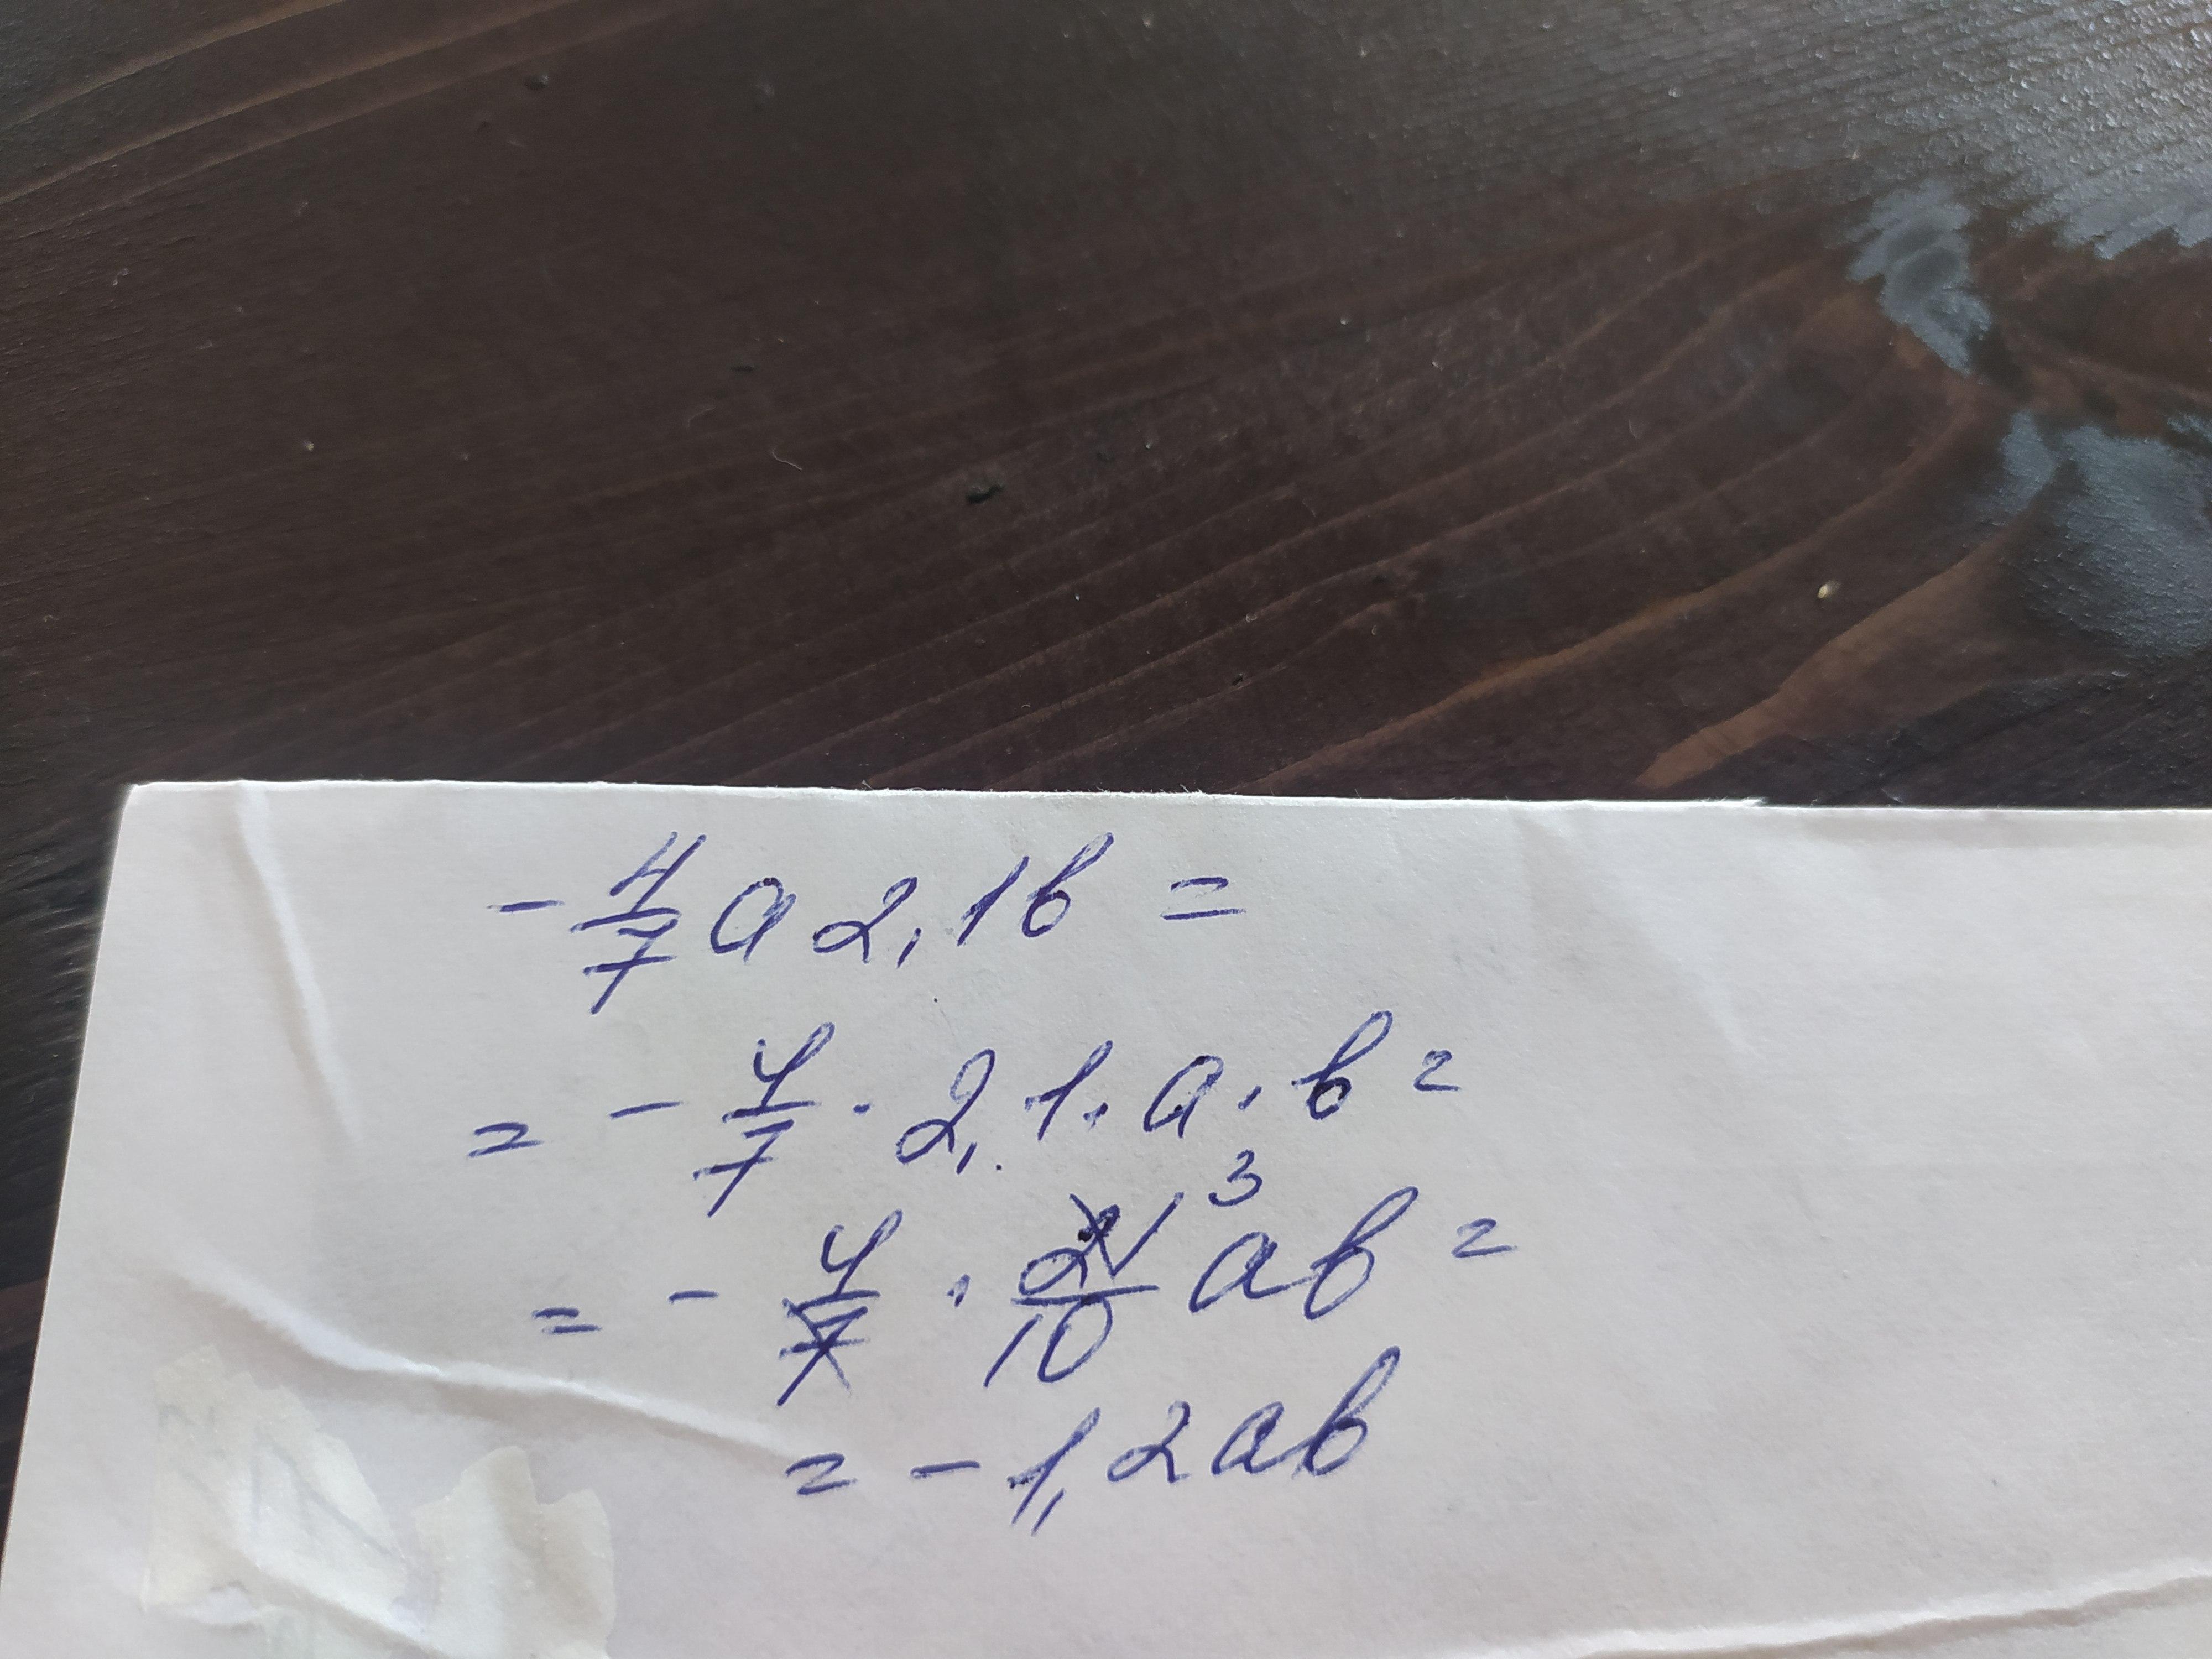 - 4/7 a 2,1b =
= - 4/7 · 2,1 · a · b =
= - 4/7 · 21/10 3 ab =
= - 1,2ab